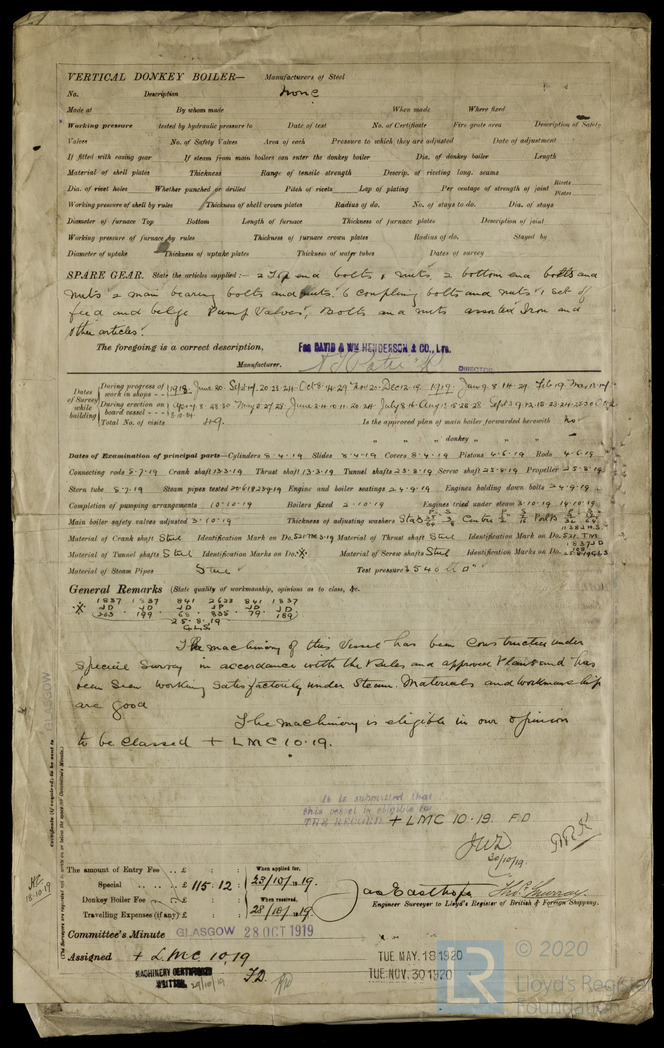 VERTICAL DONKEY BOILER— Manufacturers of Steel
No. Description None
Made at By whom made When made Where fixed
Working pressure tested by hydraulic pressure to Date of test No. of Certificate Fire grate area Description of Safety
Valves No. of Safety Valves Area of each Pressure to which they are adjusted Date of adjustment
If fitted with easing gear If steam from main boilers can enter the donkey boiler Dia. of donkey boiler Length
Material of shell plates Thickness Range of tensile strength Descrip. of riveting long. seams
Dia. of rivet holes Whether punched or drilled Pitch of rivets Lap of plating Per centage of strength of joint Rivets Plates
Working pressure of shell by rules Thickness of shell crown plates Radius of do. No. of stays to do. Dia. of stays
Diameter of furnace Top Bottom Length of furnace Thickness of furnace plates Description of joint
Working pressure of furnace by rules Thickness of furnace crown plates Radius of do. Stayed by
Diameter of uptake Thickness of uptake plates Thickness of water tubes Dates of survey
SPARE GEAR. State the articles supplied:— 2 Top end bolts & nuts, 2 bottom end bolts and
nuts 2 main bearing bolts and nuts. 6 coupling bolts and nuts 1 set of
feed and bilge Pump Valves, Bolts and nuts assorted Iron and
other articles.
The foregoing is a correct description,
FOR DAVID & WM HENDERSON & CO., LTD.
Manufacturer. DIRECTOR
Dates of Survey while building
During progress of work in shops - - 1918. June 20. Sept 17. 20. 23. 24. Oct 8. 14. 29. Nov 20. Dec 12. 19. 1919. Jan 9. 8. 14. 29. Feb 19. Mar 13. 17
During erection on board vessel - - -
Total No. of visits 49. Is the approved plan of main boiler forwarded herewith No
" " " donkey " " "
Dates of Examination of principal parts—Cylinders 8-4-19 Slides 8-4-19 Covers 8-4-19 Pistons 4-6-19 Rods 4-6-19
Connecting rods 8-7-19 Crank shaft 13-3-19 Thrust shaft 13-3-19 Tunnel shafts 25-8-19 Screw shaft 25-8-19 Propeller 25-8-19
Stern tube 8-7-19 Steam pipes tested Engine and boiler seatings 24-9-19 Engines holding down bolts 24-9-19
Completion of pumping arrangements 10-10-19 Boilers fixed 2-10-19 Engines tried under steam 3-10-19 14-10-19
Main boiler safety valves adjusted 3-10-19 Thickness of adjusting washers
Material of Crank shaft Steel Identification Mark on Do. Material of Thrust shaft Steel Identification Mark on Do.
Material of Tunnel shafts Steel Identification Marks on Do. Material of Screw shafts Steel Identification Marks on Do.
Material of Steam Pipes Steel Test pressure 540 lb □"
General Remarks (State quality of workmanship, opinions as to class, &c.
1837 1837 841 2623 841 1837
JD JD JD JP JD JD
199 68 835 79 189
25-8-19
GLS
The machinery of this Vessel has been constructed under
Special Survey in accordance with the Rules and approved Plans and has
been seen working satisfactorily under steam. Materials and workmanship
are good
The machinery is eligible in our opinion
to be classed + LMC 10.19.
It is submitted that
this vessel is eligible for
THE RECORD + LMC 10.19. FD
JWD
20/10/19
Certificate (if required) to be sent to GLASGOW
(The Surveyors are requested not to write on or below the space for Committee's Minute.)
18.10.19
The amount of Entry Fee .. £ : : When applied for,
Special .. .. £ 115.12 : 23/10/1919.
Donkey Boiler Fee .. £ : : When received,
Travelling Expenses (if any) £ : : 28/10/1919
Jas Easthope Thos. Murray
Engineer Surveyor to Lloyd's Register of British & Foreign Shipping.
Committee's Minute GLASGOW 28 OCT 1919
Assigned + LMC 10.19
F.D.
MACHINERY CERTIFICATE
WRITTEN. 29/10/19
TUE. MAY. 18 1920
TUE. NOV. 30 1920
LR
© 2020
Lloyd's Register
Foundation